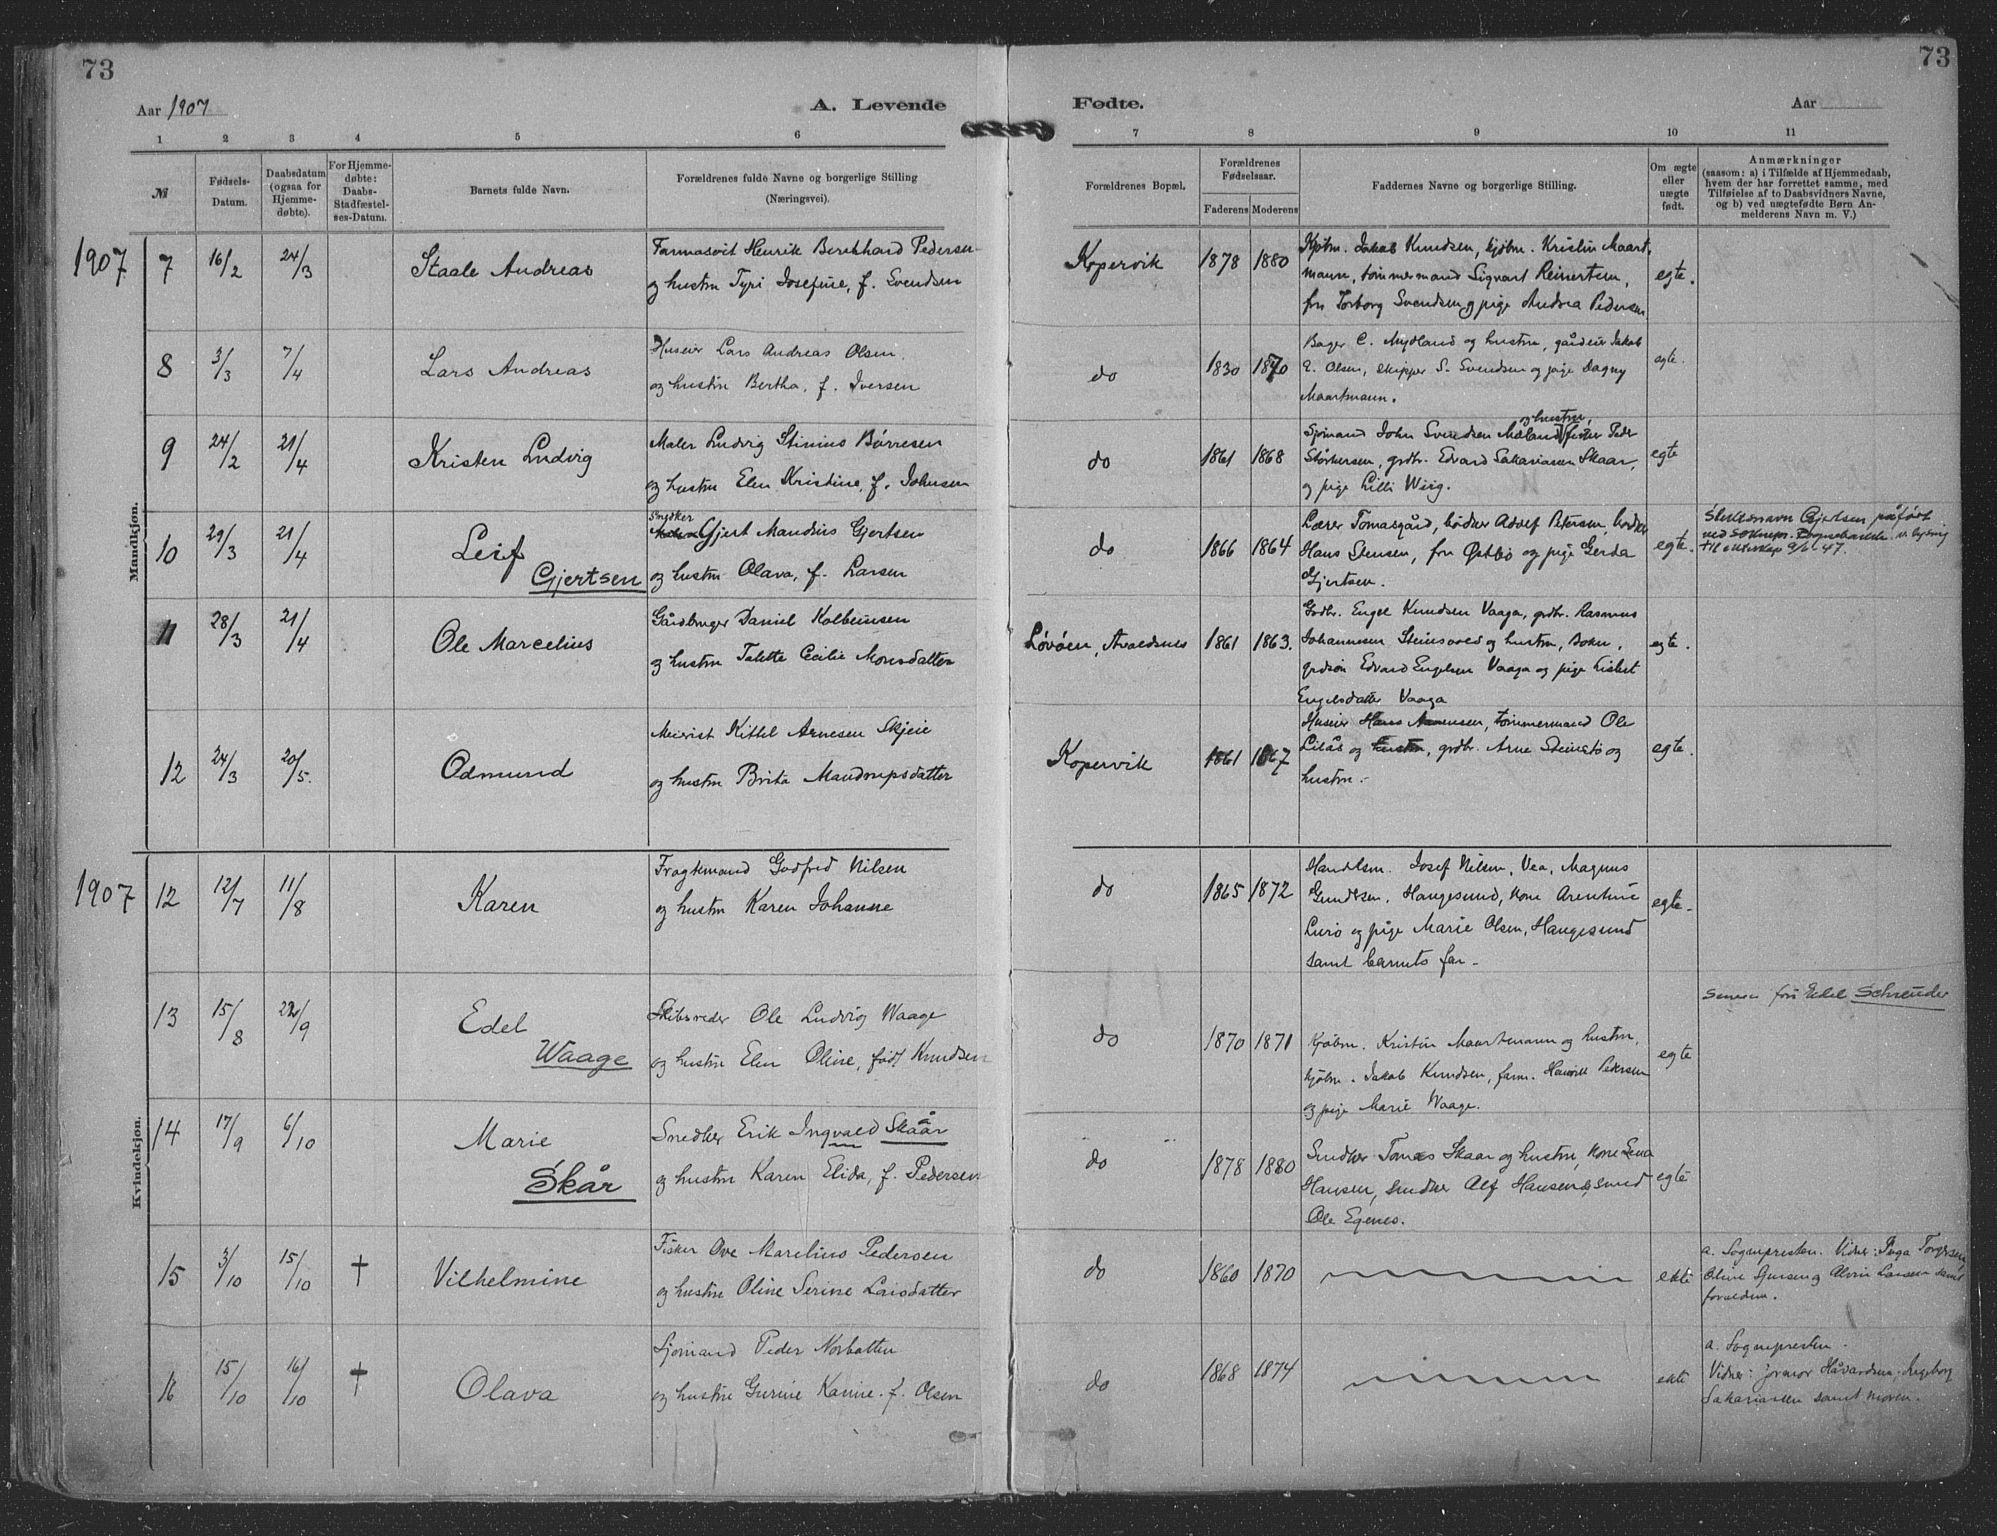 73
73
Aar 1907
A. Levende
Fødte.
Aar
1 2 3 4 5 6 7 8 9 10 11
№
Fødsels-
Datum.
Daabsdatum
(ogsaa for
Hjemme-
døbte).
For Hjemme-
døbte:
Daabs-
Stadfæstel-
ses-Datum.
Barnets fulde Navn.
Forældrenes fulde Navne og borgerlige Stilling
(Næringsvei).
Forældrenes Bopæl.
Forældrenes
Fødselsaar.
Faderens Moderens
Faddernes Navne og borgerlige Stilling.
Om ægte
eller
uægte
født.
Anmærkninger
(saasom: a) i Tilfælde af Hjemmedaab,
hvem der har forrettet samme, med
Tilføielse af to Daabsvidners Navne,
og b) ved uægtefødte Børn An-
melderens Navn m. V.)
Mandkjøn.
1907
7
16/2
24/3
Staale Andreas
Farmasvit Henrik Bernhard Pedersen
og hustru Tyri Josefine, f. Svendsen
Kopervik
1878 1880
Kjøbm. Jakob Knudsen, kjøbm. Kristin Maart
mann, tømmermand Sigvart Reinertsen,
fru Torborg Svendsen og pige Andrea Pedersen
egte.
8
3/3
7/4
Lars Andreas
Huseier Lars Andreas Olsen
og hustru Bertha, f. Iversen
do
1830 1870
Bager C. Mydland og hustru, gårdeier Jakob
E. Olsen, skipper S. Svendsen og pige Dagny
Maartmann.
egte.
9
24/2
21/4
Kristen Ludvig
Maler Ludvig Stinius Børresen
og hustru Elen Kristine, f. Johnsen
do
1861 1868
og hustru,
Sjømand John Svendsen Mæland, fisker Peder
Størkersen, grdbr. Edvard Sakariassen Skaar,
og pige Lilli Wiig.
egte
10
29/3
21/4
Leif
Gjertsen
Snedker
Gjert Mandius Gjertsen
og hustru Olava, f. Larsen
do
1866 1864
Lærer Tomasgård, bødker Adolf Petersen, bødker
Hans Stensen, fru Østbø og pige Gerda
Gjertsen.
egte.
Slektsnavn Gjertsen påført
ved Sokнepr. v. lysing
til ekteskap 9/6 47.
11
28/3
21/4
Ole Marcelius
Gårdbruger Daniel Kolbeinsen
og hustru Talette Cecilie Monsdatter
Løvøen, Avaldsnes
1861 1863.
Grdbr. Engel Knudsen Vaaga, grdbr. Rasmus
Johannesen og hustru, Bokn,
grdsøn Edvard Engelsen Vaaga og pige Lisbet
Engelsdatter Vaaga
egte.
12
24/3
20/5.
Odmund
Meierist Kittel Arnesen Skjeie
og hustru Brita Mandrupsdatter
Kopervik
1861 1867
Huseier Hans tømmermand Ole
Liläs og hustru, grdbr. Arne Steinstø og
hustru.
egte.
Kvindekjøn.
1907
12
12/7
11/8
Karen
Fragtemand Godfred Nilsen
og hustru Karen Johanne
do
1865 1872
Handlsm. Josef Nilsen, Vea, Magnus
Gundersen, Haugesund, kone Arentine
Lurø og pige Marie Olsen, Haugesund
samt barnets far.
egte.
13
15/8
22/9
Edel
Waage
Skibsreder Ole Ludvig Waage
og hustru Elen Oline, født Knudsen
do
1870 1871
Kjøbm. Kristin Maartmann og hustru,
kjøbm. Jakob Knudsen, farm. Henrik Pedersen
og pige Marie Waage.
egte
Senere fru Edel Schreuder
14
17/9
6/10
Marie
Skår
Snedker Erik Ingvald Skaar
og hustru Karen Elida, f. Pedersen
do
1878 1880
Snedker Tomas Skaar og hustru, kone Lena
Hansen, snedker Alf Hansen og smed
Ole Egenes.
egte
15
3/10
15/10
†
Vilhelmine
Fisker Ove Marelius Pedersen
og hustru Oline Serine Larsdatter
do
1860 1870
ekte
a. Sognepresten. Vidner: Inga Torgersen,
Oline og Alvin Larsen samt
forældrene.
16
15/10
16/10
†
Olava
Sjømand Peder Norbotten
og hustru Gurine Karine. f. Olsen
do
1868 1874
ekte
a. Sognepresten.
Vidner: jormor Håvardsen, Ingeborg
Sakariassen samt moren.